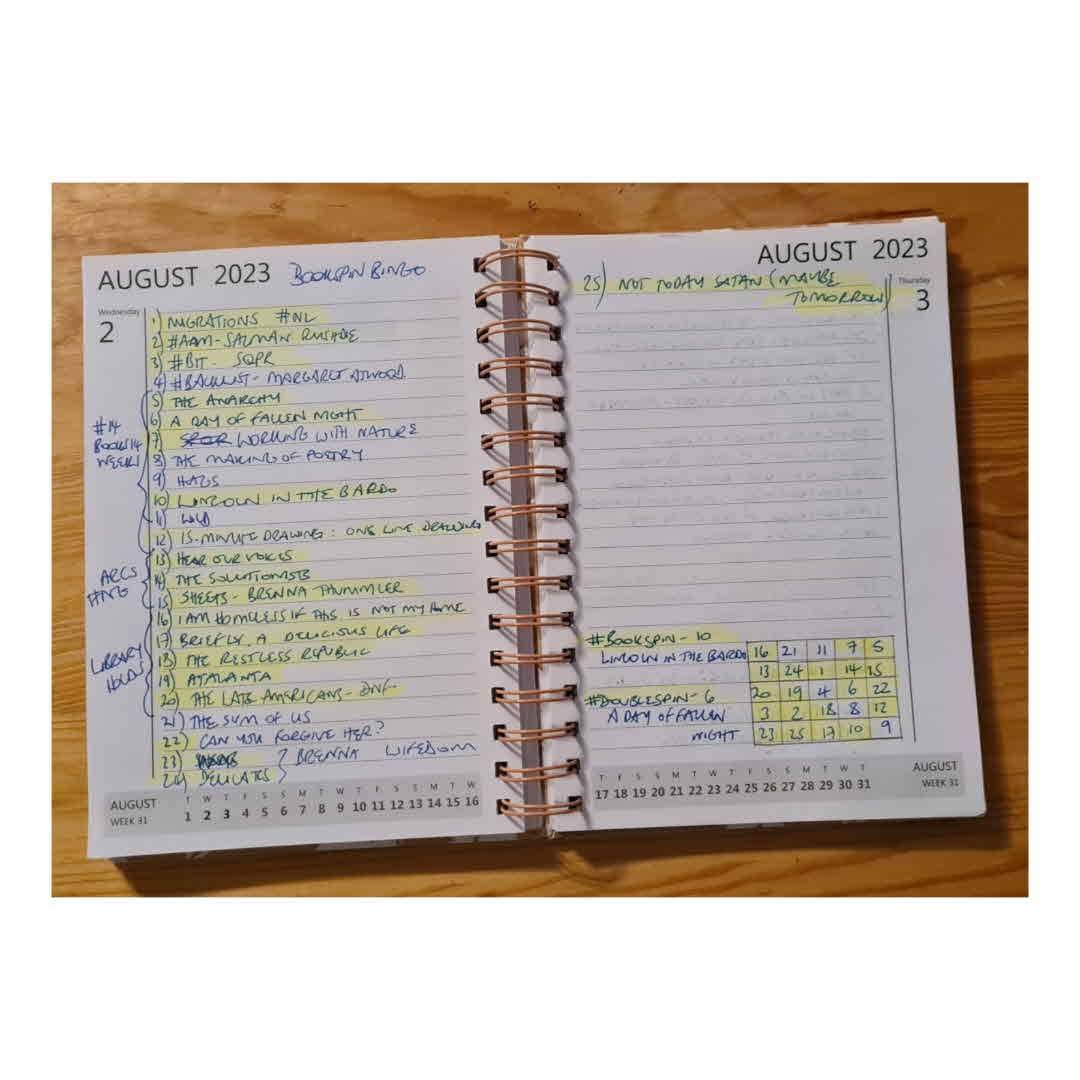 AUGUST 2023 BOOKSPIN BINGO
Wednesday
2
1) MIGRATIONS #NL
2) #AAM - SALMAN RUSHDIE
3) #BIT - SQPR
4) #BACKLIST - MARGARET ATWOOD
5) THE ANARCHY
6) A DAY OF FALLEN NIGHT
7) WORKING WITH NATURE
8) THE MAKING OF POETRY
9) HAGS
10) LINCOLN IN THE BARDO
11) WILD
12) 15-MINUTE DRAWING: ONE LINE DRAWING
13) HEAR OUR VOICES
14) THE SOLUTIONISTS
15) SHEETS - BRENNA THUMMLER
16) I AM HOMELESS IF THIS IS NOT MY HOME
17) BRIEFLY, A DELICIOUS LIFE
18) THE RESTLESS REPUBLIC
19) ATALANTA
20) THE LATE AMERICANS - DNF
21) THE SUM OF US
22) CAN YOU FORGIVE HER?
23) } BRENNA WIFEDOM
24) DELICATES
#14
BOOKS14
WEEKS
ARCS
#NG
LIBRARY
HOLDS
AUGUST
WEEK 31
T W T F S S M T W T F S S M T W
1 2 3 4 5 6 7 8 9 10 11 12 13 14 15 16
AUGUST 2023
Thursday
3
25) NOT TODAY SATAN (MAYBE
TOMORROW)
#BOOKSPIN - 10
LINCOLN IN THE BARDO
#DOUBLESPIN - 6
A DAY OF FALLEN
NIGHT
16 21 11 7 5
13 24 1 14 15
20 19 4 6 22
3 2 18 8 12
23 25 17 10 9
T F S S M T W T F S S M T W T
17 18 19 20 21 22 23 24 25 26 27 28 29 30 31
AUGUST
WEEK 31